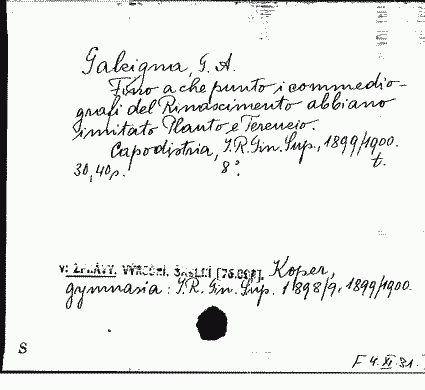 Galzigna, G. A.
Fino a che punto i commedio-
grafi del Rinascimento abbiano
imitato Plauto e Terenzio.
Capodistria, I.R. Gin. Sup., 1899/1900.
30, 40 s. 8°. t.
v: ZPRÁVY. VÝROČNÍ. ŠKOLNÍ [76.068]. Koper,
gymnasia: I.R. Gin. Sup. 1898/9, 1899/1900.
S
F 4.XI.31.